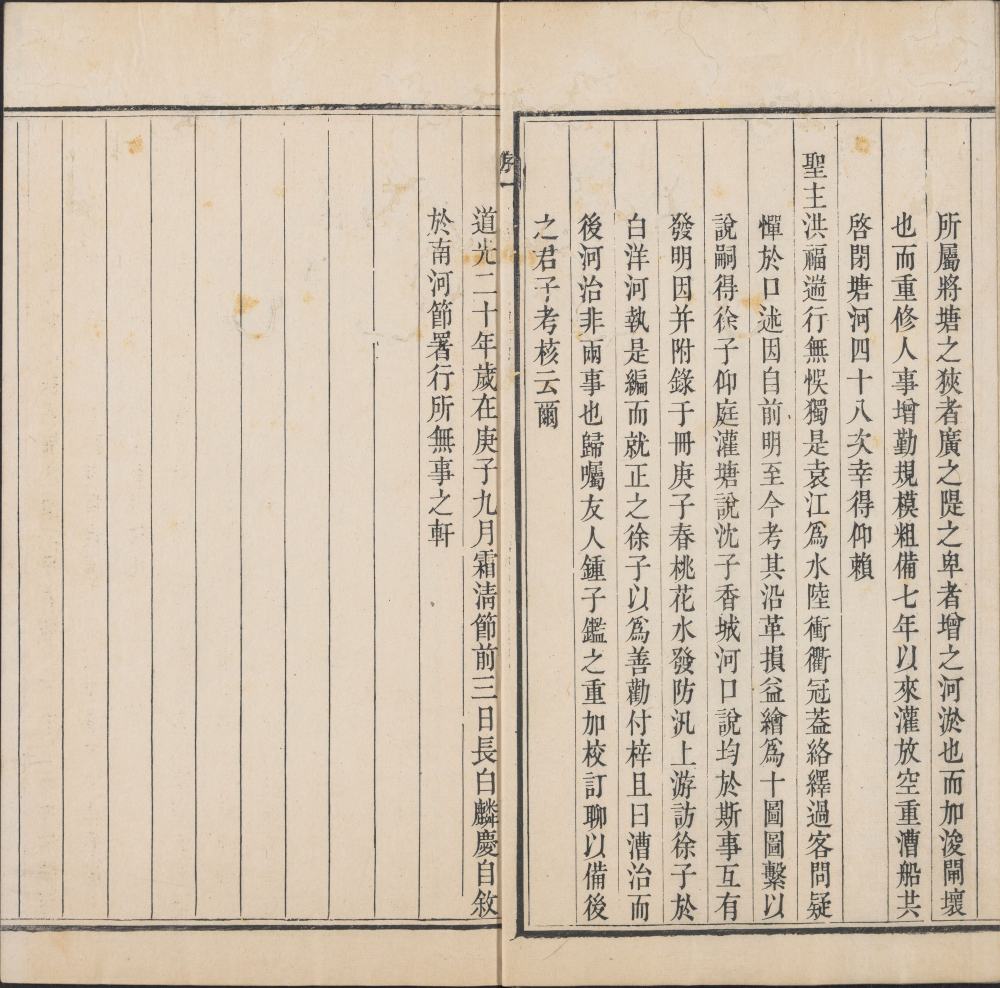 所屬將塘之狹者廣之隄之卑者增之河淤也而加浚閘壞
也而重修人事增勤規模粗備七年以來灌放空重漕船共
啓閉塘河四十八次幸得仰賴
聖主洪福遄行無悞獨是袁江爲水陸衝衢冠葢絡繹過客問疑
憚於口述因自前明至今考其沿革損益繪爲十圖圖繫以
說嗣得徐子仰庭灌塘說沈子香城河口說均於斯事互有
發明因并附錄于冊庚子春桃花水發防汛上游訪徐子於
白洋河執是編而就正之徐子以爲善勸付梓且曰漕治而
後河治非兩事也歸囑友人鍾子鑑之重加校訂聊以備後
之君子考核云爾
序
一
道光二十年歲在庚子九月霜淸節前三日長白麟慶自敘
於南河節署行所無事之軒